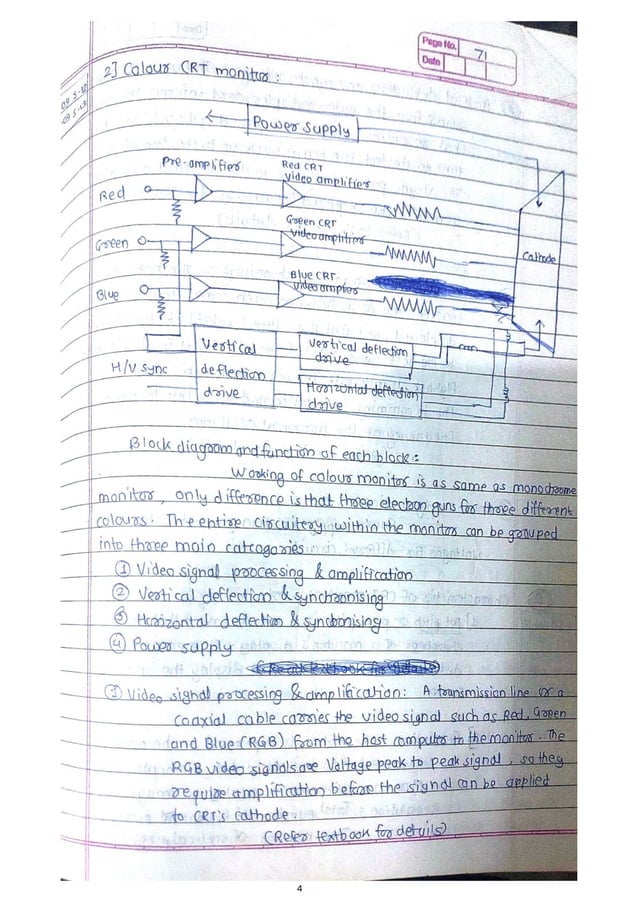 Page No. 71
Date
2] Colour CRT monitor:
Power supply
Pre-amplifier
Red CRT
video amplifier
Red
Green CRT
Video amplifier
Green
Cathode
Blue CRT
video amplifier
Blue
Vertical
deflection
drive
Vertical deflection
drive
H/V sync
Horizontal deflection
drive
Block diagram and function of each block:
Working of colour monitor is as same as monochrome
monitor, only difference is that three electron guns for three different
colours. The entire circuitery within the monitor can be grouped
into three main catragories
① Video signal processing & amplification
② Vertical deflection & synchronising
③ Horizontal deflection & syncbonising
④ Power supply
① Video signal processing & amplification: A transmission line or a
coaxial cable carries the video signal such as Red, Green
and Blue (RGB) from the host computer to the monitor. The
RGB video signals are Voltage peak to peak signal, so they
require amplification before the signal can be applied
to CRT's cathode
(Refer textbook for details)
4